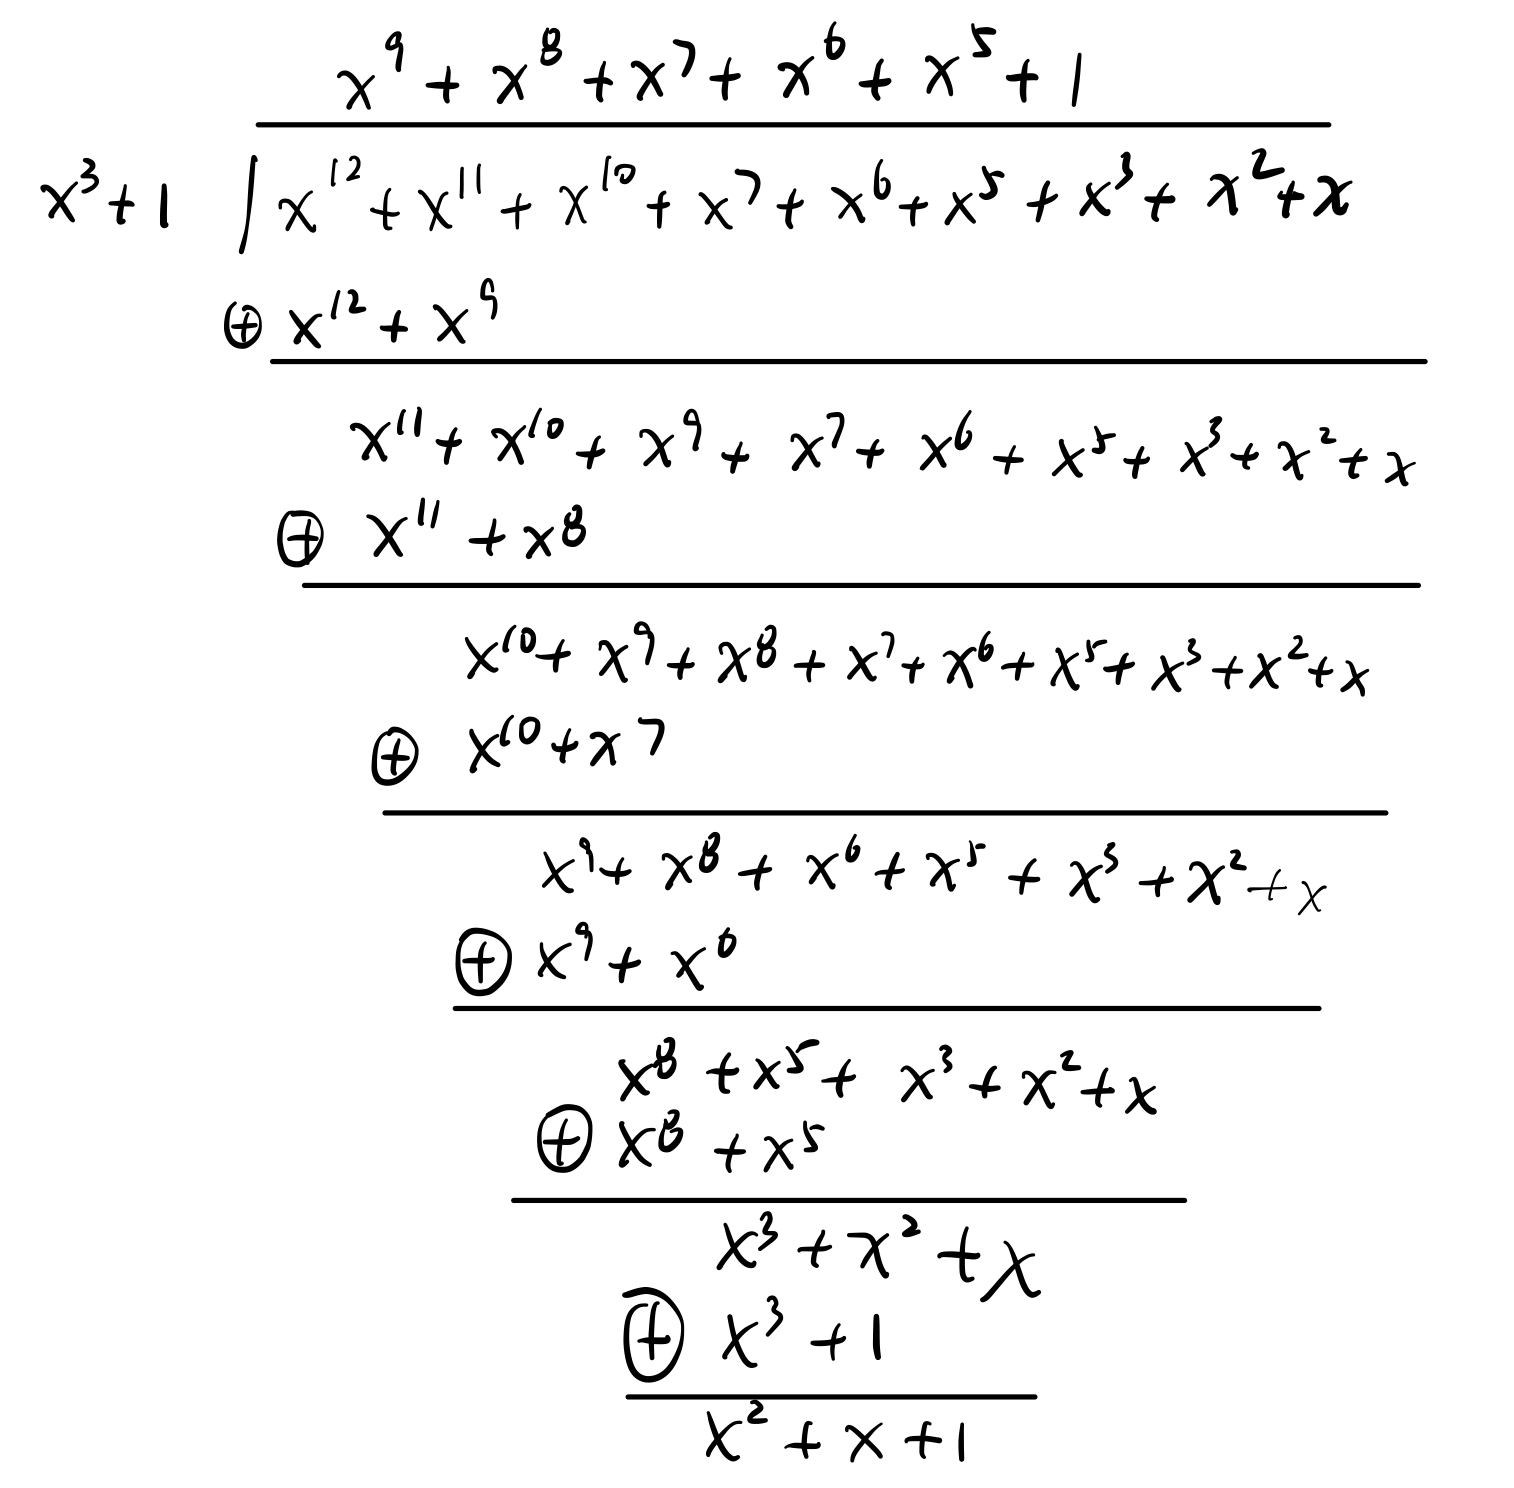 x⁹ + x⁸ + x⁷ + x⁶ + x⁵ + 1
x³ + 1 / x¹² + x¹¹ + x¹⁰ + x⁷ + x⁶ + x⁵ + x³ + x² + x
⊕ x¹² + x⁹
x¹¹ + x¹⁰ + x⁹ + x⁷ + x⁶ + x⁵ + x³ + x² + x
⊕ x¹¹ + x⁸
x¹⁰ + x⁹ + x⁸ + x⁷ + x⁶ + x⁵ + x³ + x² + x
⊕ x¹⁰ + x⁷
x⁹ + x⁸ + x⁶ + x⁵ + x³ + x² + x
⊕ x⁹ + x⁶
x⁸ + x⁵ + x³ + x² + x
⊕ x⁸ + x⁵
x³ + x² + x
⊕ x³ + 1
x² + x + 1